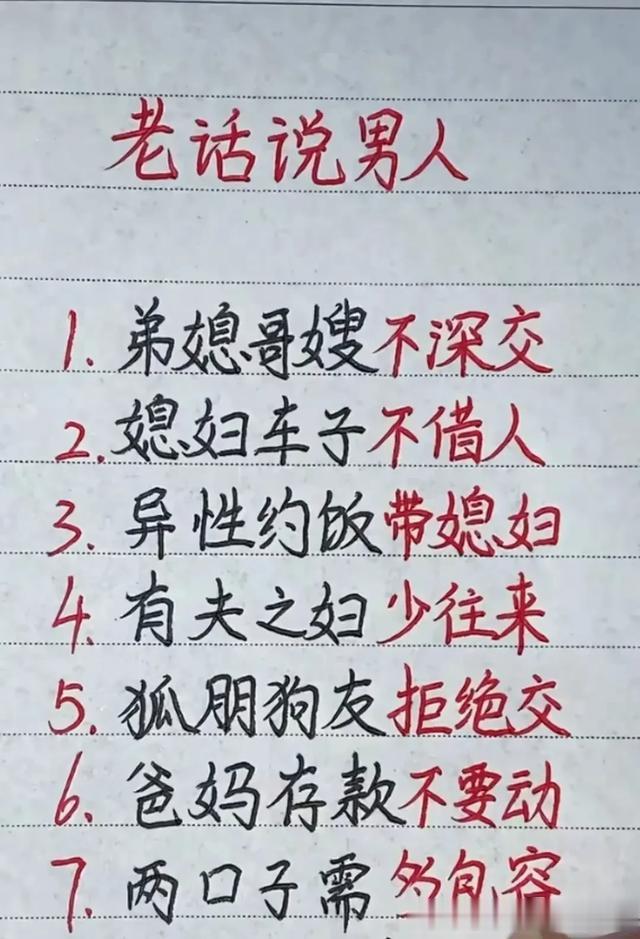 老话说男人
1. 弟媳哥嫂不深交
2. 媳妇车子不借人
3. 异性约饭带媳妇
4. 有夫之妇少往来
5. 狐朋狗友拒绝交
6. 爸妈存款不要动
7. 两口子需多包容